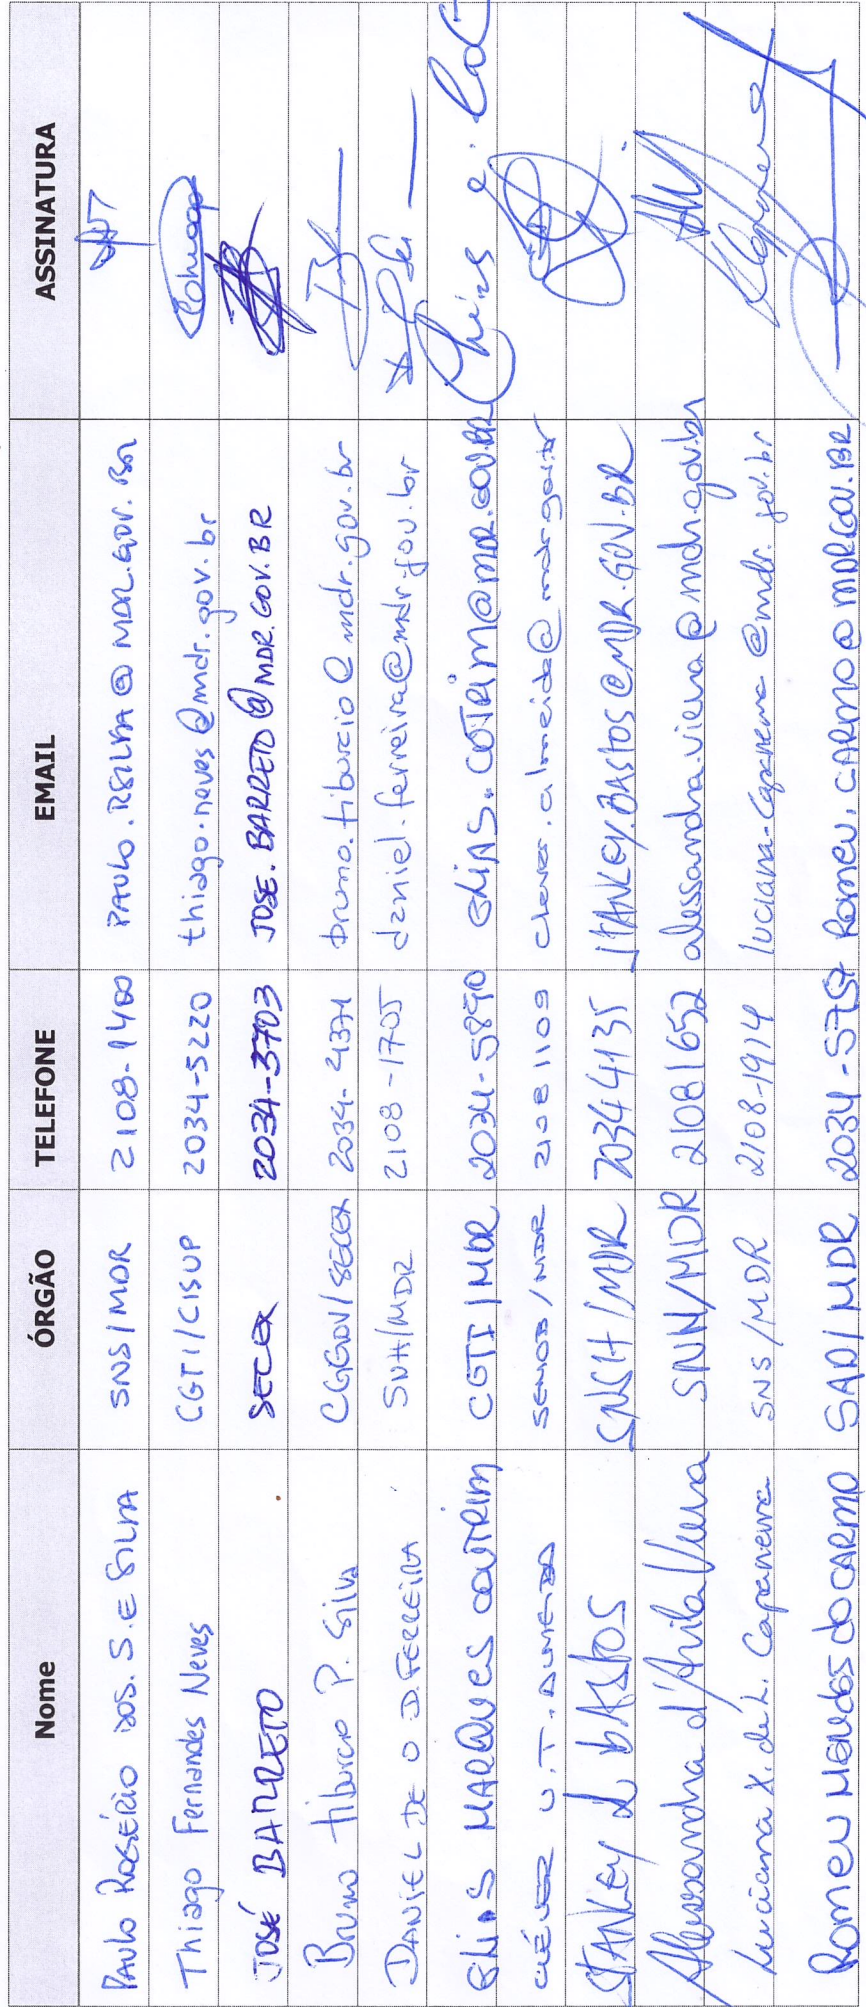 Nome ÓRGÃO TELEFONE EMAIL ASSINATURA
PAULO ROGÉRIO DOS. S. E SILVA SNS/MDR 2108-1400 PAULO.RSILVA@MDR.GOV.BR
Thiago Fernandes Neves CGTI/CISUP 2034-5220 thiago.neves@mdr.gov.br
JOSÉ BARRETO SECEX 2034-3703 JOSE.BARRETO@MDR.GOV.BR
Bruno Tiburcio P. Silva CGGOV/SECEX 2034-4371 bruno.tiburcio@mdr.gov.br
DANIEL DE O D. FERREIRA SNH/MDR 2108-1705 daniel.ferreira@mdr.gov.br
ELIAS MARQUES COUTRIM CGTI/MDR 2034-5890 ELIAS.COTRIM@MDR.GOV.BR
CLÉVER U.T. ALMEIDA SEMOB/MDR 21081109 clever.almeida@mdr.gov.br
STANLEY BASTOS SNSH/MDR 20344135 STANLEY.BASTOS@MDR.GOV.BR
Alessandra d'Avila Vieira SNH/MDR 21081652 alessandra.vieira@mdr.gov.br
Luciana X. de L. Capanema SNS/MDR 2108-1914 luciana.capanema@mdr.gov.br
ROMEU MENDES DO CARMO SAD/MDR 2034-5757 ROMEU.CARMO@MDR.GOV.BR